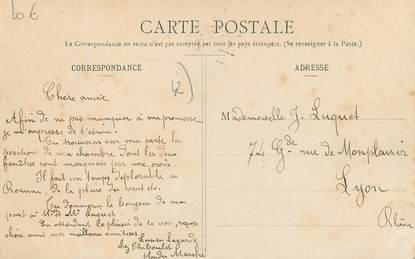 60 €
CARTE POSTALE
La Correspondance au recto n'est pas acceptée par tous les pays étrangers. (Se renseigner à la Poste.)
CORRESPONDANCE
Chère amie
Afin de ne pas manquer à ma promesse
je m'empresse de t'écrire.
Tu trouveras sur ma carte la
position de ma chambre dont les deux
fenêtres sont marquées par une croix.
Il fait un temps déplorable à
Roanne, de la pluie du vent etc.
Tu donneras le bonjour de ma
part à Mr et Mme Luquet.
En attendant le plaisir de te voir, reçois
chère amie mes meilleures amitiés.
Lucien Lagarde
chez Thiboulet
place du Marché
ADRESSE
Mademoiselle J. Luquet
74 Gde rue de Monplaisir
Lyon
Rhône